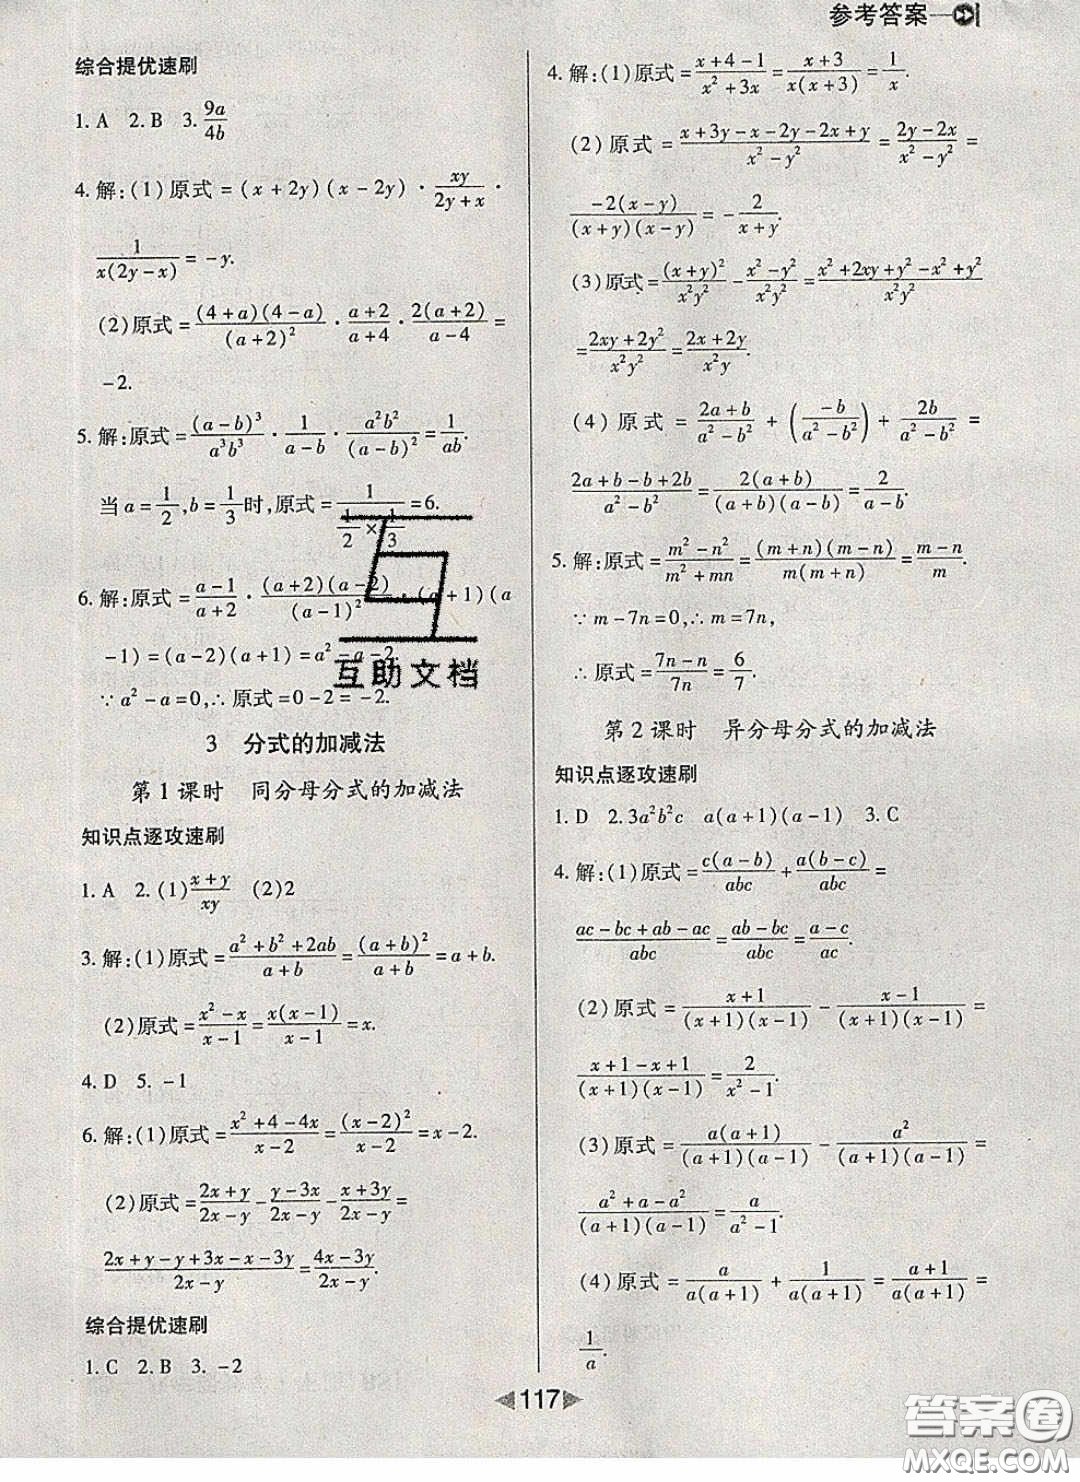 参考答案
综合提优速刷
1. A 2. B 3. 9a/4b
4. 解:(1)原式 = (x+2y)(x-2y) · xy/(2y+x) ·
1/(x(2y-x)) = -y.
(2)原式 = (4+a)(4-a)/(a+2)² · (a+2)/(a+4) · 2(a+2)/(a-4) =
-2.
5. 解:原式 = (a-b)³/(a³b³) · 1/(a-b) · a²b²/(a-b)² = 1/(ab).
当 a = 1/2, b = 1/3 时,原式 = 1/(1/2 × 1/3) = 6.
6. 解:原式 = (a-1)/(a+2) · (a+2)(a-2)/(a-1)² · (a+1)(a
-1) = (a-2)(a+1) = a²-a-2.
∵ a²-a=0,∴ 原式=0-2=-2.
3 分式的加减法
第1课时 同分母分式的加减法
知识点逐攻速刷
1. A 2. (1) (x+y)/xy (2)2
3. 解:(1)原式 = (a²+b²+2ab)/(a+b) = (a+b)²/(a+b) = a+b.
(2)原式 = (x²-x)/(x-1) = x(x-1)/(x-1) = x.
4. D 5. -1
6. 解:(1)原式 = (x²+4-4x)/(x-2) = (x-2)²/(x-2) = x-2.
(2)原式 = (2x+y)/(2x-y) - (y-3x)/(2x-y) - (x+3y)/(2x-y) =
(2x+y-y+3x-x-3y)/(2x-y) = (4x-3y)/(2x-y).
综合提优速刷
1. C 2. B 3. -2
4. 解:(1)原式 = (x+4-1)/(x²+3x) = (x+3)/(x(x+3)) = 1/x.
(2)原式 = (x+3y-x-2y-2x+y)/(x²-y²) = (2y-2x)/(x²-y²) =
-2(x-y)/((x+y)(x-y)) = -2/(x+y).
(3)原式 = (x+y)²/(x²y²) - (x²-y²)/(x²y²) = (x²+2xy+y²-x²+y²)/(x²y²)
= (2xy+2y²)/(x²y²) = (2x+2y)/(x²y).
(4)原式 = (2a+b)/(a²-b²) + (-b/(a²-b²)) + 2b/(a²-b²) =
(2a+b-b+2b)/(a²-b²) = 2(a+b)/((a+b)(a-b)) = 2/(a-b).
5. 解:原式 = (m²-n²)/(m²+mn) = (m+n)(m-n)/(m(m+n)) = (m-n)/m.
∵ m-7n=0,∴ m=7n,
∴ 原式 = (7n-n)/7n = 6/7.
第2课时 异分母分式的加减法
知识点逐攻速刷
1. D 2. 3a²b²c a(a+1)(a-1) 3. C
4. 解:(1)原式 = c(a-b)/abc + a(b-c)/abc =
(ac-bc+ab-ac)/abc = (ab-bc)/abc = (a-c)/ac.
(2)原式 = (x+1)/((x+1)(x-1)) - (x-1)/((x+1)(x-1)) =
(x+1-x+1)/((x+1)(x-1)) = 2/(x²-1).
(3)原式 = a(a+1)/((a+1)(a-1)) - a²/((a+1)(a-1)) =
(a²+a-a²)/((a+1)(a-1)) = a/(a²-1).
(4)原式 = a/(a(a+1)) + 1/(a(a+1)) = (a+1)/(a(a+1)) =
1/a.
117
互助文档
答案圈
MXQE.COM